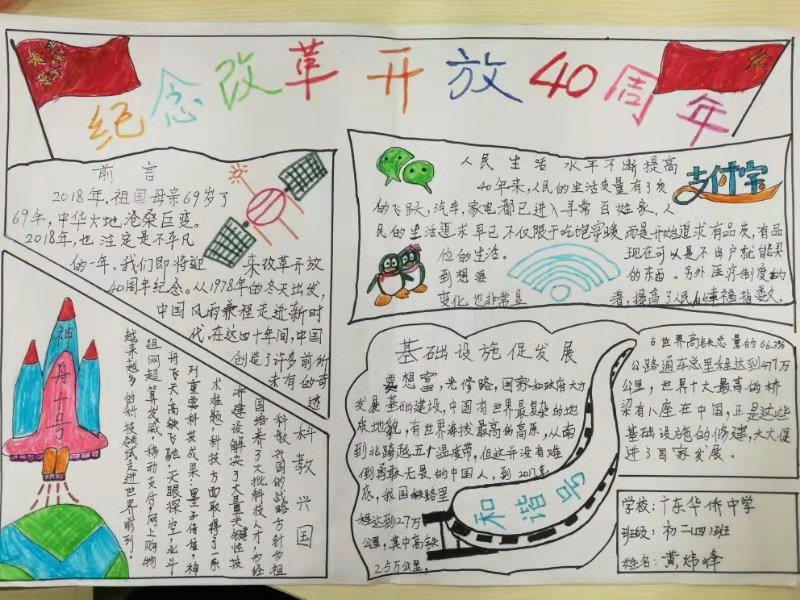 纪念改革开放40周年
前言
2018年,祖国母亲69岁了
69年,中华大地沧桑巨变。
2018年,也注定是不平凡
的一年,我们即将迎来改革开放
40周年纪念。从1978年的冬天出发,
中国风雨兼程走进新时
代,在这四十年间,中国
创造了许多前所
未有的奇迹
人民生活水平不断提高
40年来,人民的生活质量有了质
的飞跃,汽车,家电都已进入寻常百姓家,人
民的生活追求早已不仅限于吃饱穿暖而是开始追求有品质,有品
位的生活。现在可以是不出户就能买
到想要的东西。另外医疗制度的
变化也非常显著,提高了人民的幸福指数。
支付宝
神舟十号
科教兴国
科教兴国的战略方针为祖
国培养了大批科技人才,为经
济建设解决了大量关键性技
术难题,科技方面取得了一系
列重要科技成果:墨子传信,神
舟飞天,高铁飞驰,天眼探空,北斗
组网,超算发威,移动支付,网上购物
越来越多的科技领域走进世界前列。
基础设施促发展
要想富,先修路,国家和政府大力
发展基础建设,中国有世界最复杂的地
质地貌,有世界海拔最高的高原,从南
到北跨越五个温度带,但这并没有难
倒勇敢无畏的中国人,到2017年
底,我国铁路里
程达到12.7万
公里,其中高铁
2.5万公里,
和谐号
占世界高铁总量的66.3%
公路通车总里程达到477万
公里,世界十大最高的桥
梁有八座在中国,正是这些
基础设施的修建,大大促
进了国家发展。
学校:广东华侨中学
班级:初二四班
姓名:黄炜峰